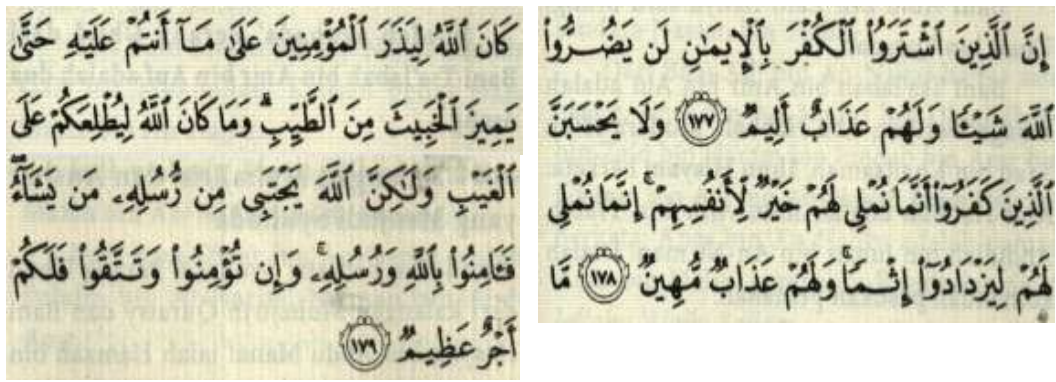 إِنَّ ٱلَّذِينَ ٱشْتَرَوُا۟ ٱلْكُفْرَ بِٱلْإِيمَٰنِ لَن يَضُرُّوا۟
ٱللَّهَ شَيْـًٔا وَلَهُمْ عَذَابٌ أَلِيمٌ ١٧٧ وَلَا يَحْسَبَنَّ
ٱلَّذِينَ كَفَرُوٓا۟ أَنَّمَا نُمْلِى لَهُمْ خَيْرٌ لِّأَنفُسِهِمْ ۚ إِنَّمَا نُمْلِى
لَهُمْ لِيَزْدَادُوٓا۟ إِثْمًا ۚ وَلَهُمْ عَذَابٌ مُّهِينٌ ١٧٨ مَّا
كَانَ ٱللَّهُ لِيَذَرَ ٱلْمُؤْمِنِينَ عَلَىٰ مَآ أَنتُمْ عَلَيْهِ حَتَّىٰ
يَمِيزَ ٱلْخَبِيثَ مِنَ ٱلطَّيِّبِ ۗ وَمَا كَانَ ٱللَّهُ لِيُطْلِعَكُمْ عَلَى
ٱلْغَيْبِ وَلَٰكِنَّ ٱللَّهَ يَجْتَبِى مِن رُّسُلِهِۦ مَن يَشَآءُ ۖ
فَـَٔامِنُوا۟ بِٱللَّهِ وَرُسُلِهِۦ ۚ وَإِن تُؤْمِنُوا۟ وَتَتَّقُوا۟ فَلَكُمْ
أَجْرٌ عَظِيمٌ ١٧٩